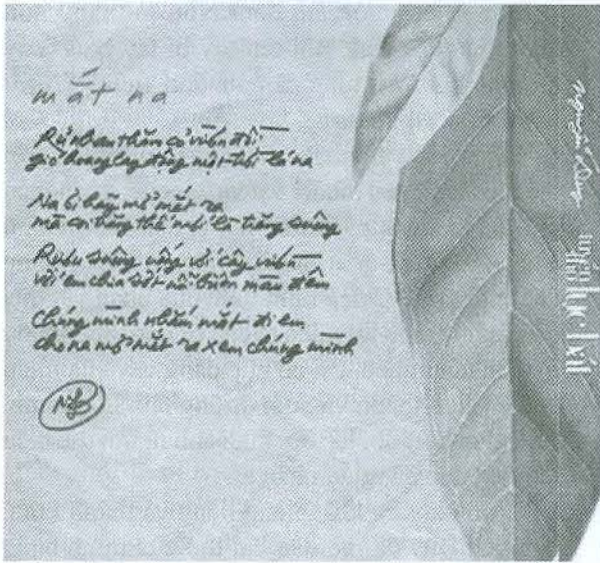 mắt na
Rủ nhau thăm cỏ vườn đồi
gió hoang lay động một trời lá na
Na ơi hãy mở mắt ra
mà coi trăng thế mới là trăng suông
Rượu suông uống với cây vườn
với em chia sớt nỗi buồn màu đêm
Chúng mình nhắm mắt đi em
cho na mở mắt ra xem chúng mình
Nguyễn Duy
lục bát